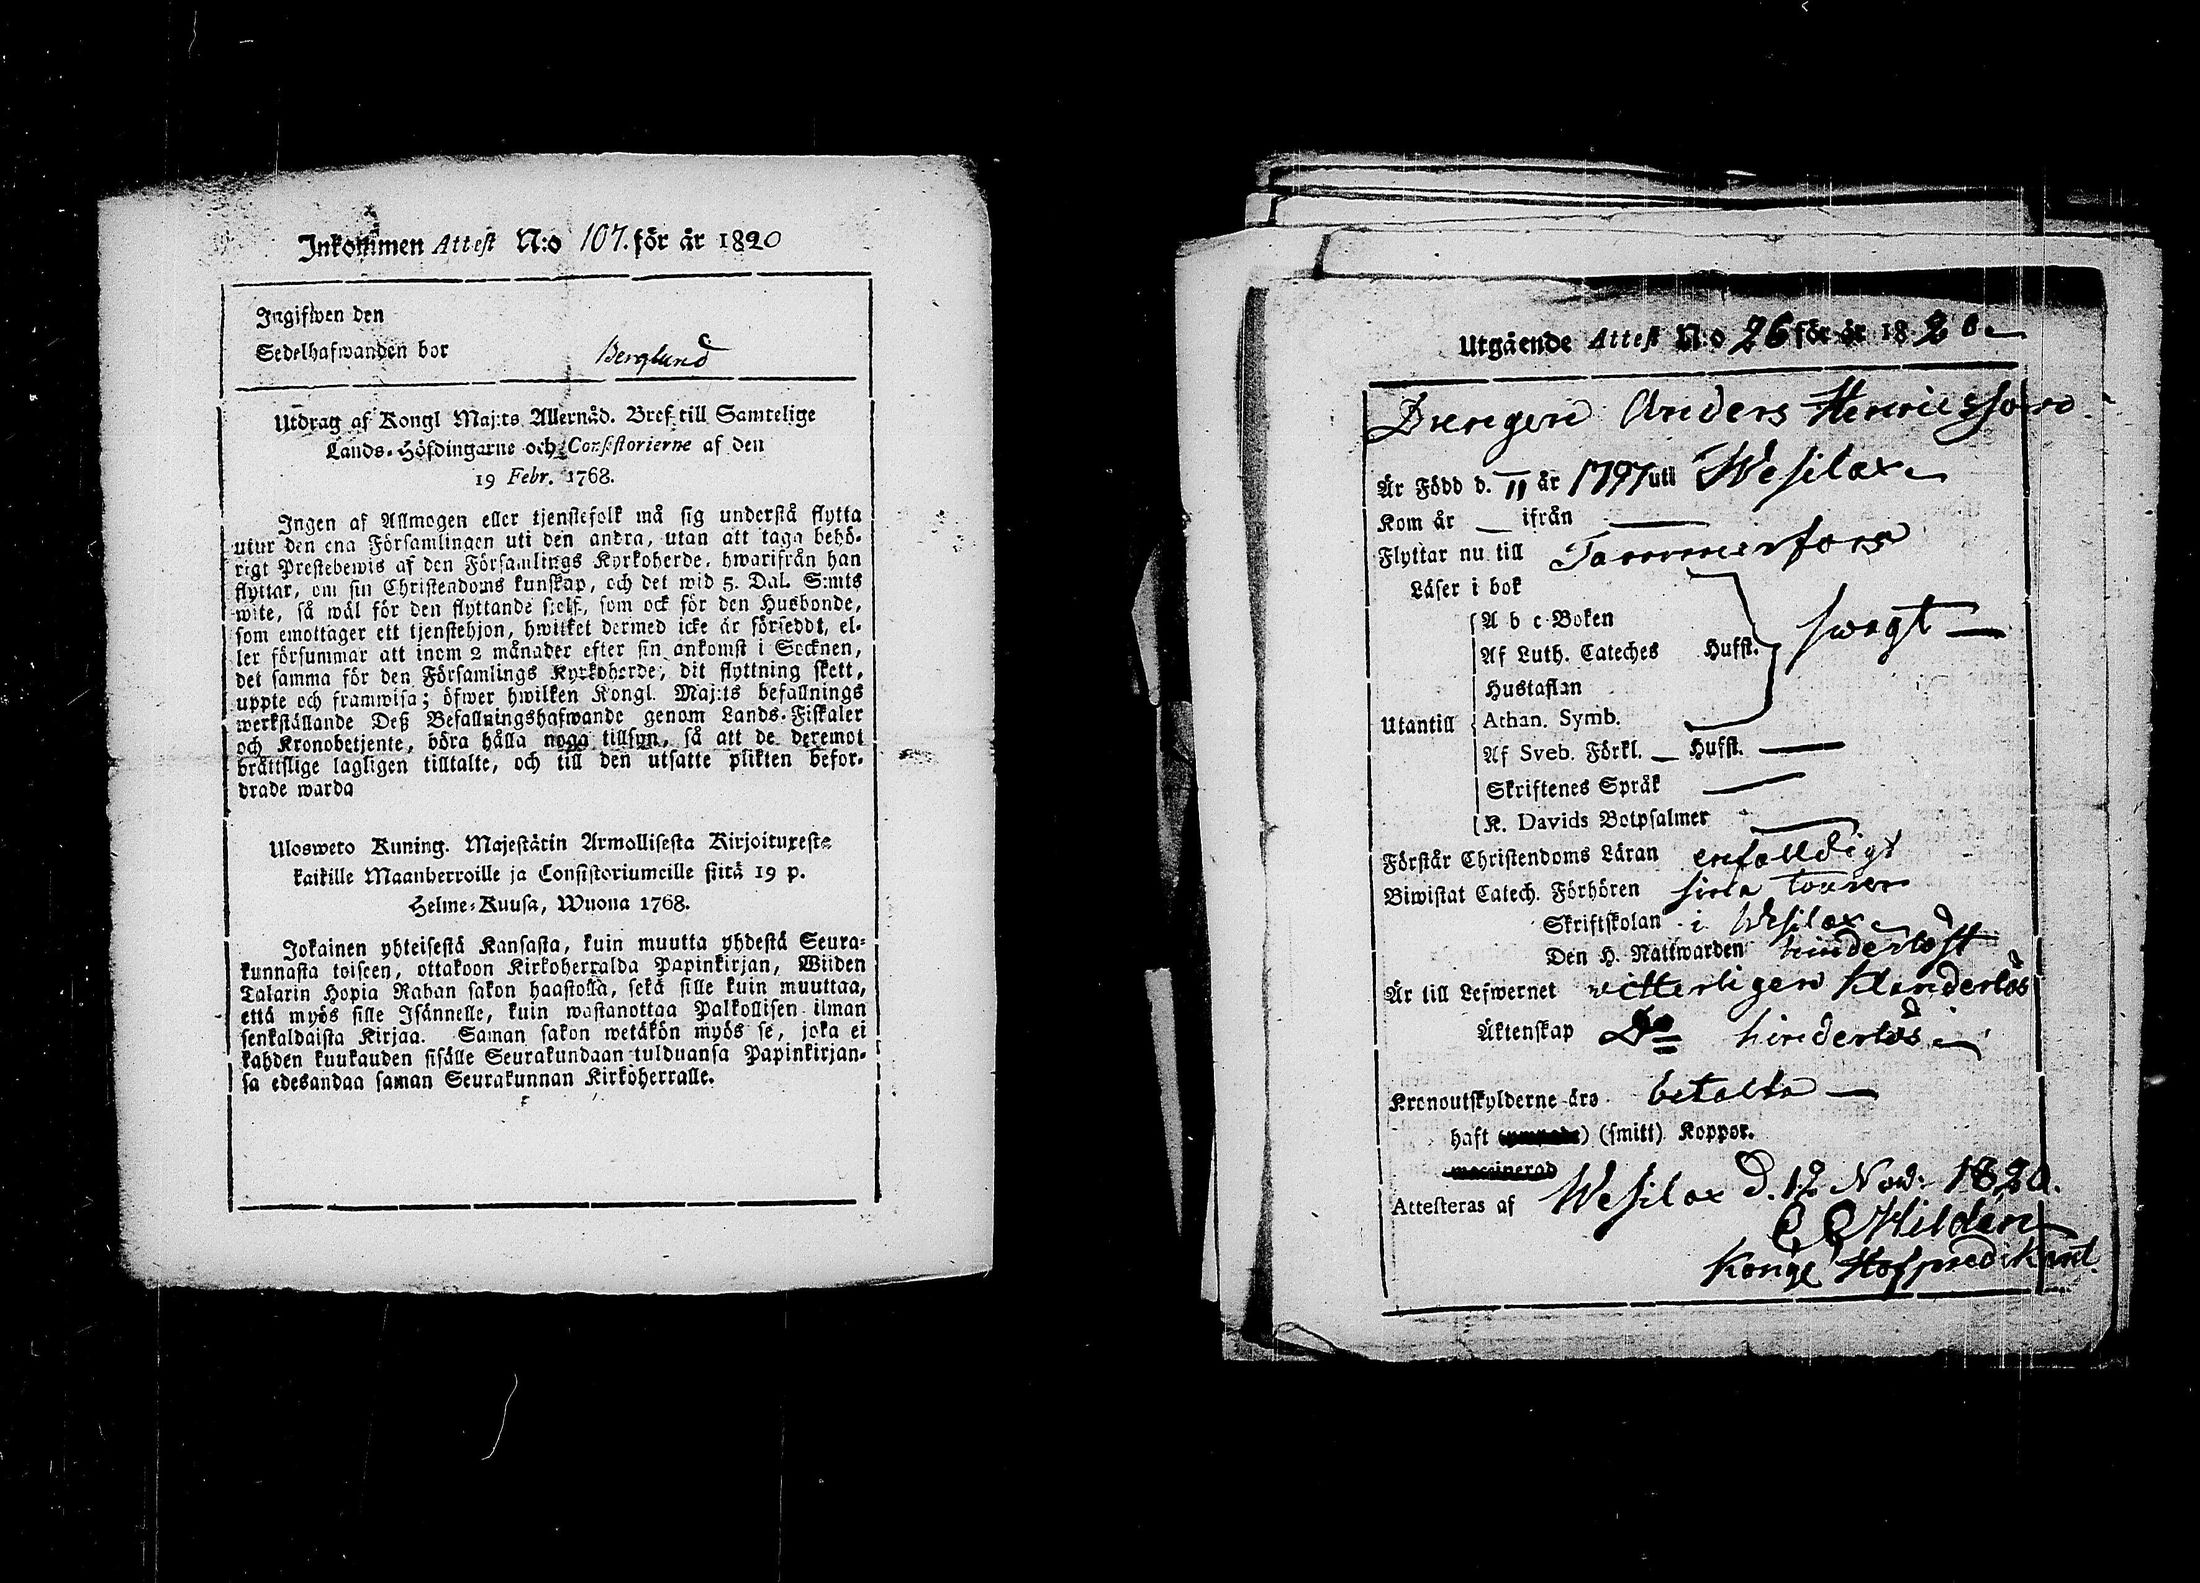 Inkommen Attest N:o 107. för år 1820
Ingifwen den
Sedelhafwanden bor Berglund
Utdrag af Kongl Maj:ts Allernåd. Bref till Samtelige
Lands-Höfdingarne och Consistorierne af den
19 Febr. 1768.
Ingen af Allmogen eller tjenstefolk må sig understå flytta
utur den ena Församlingen uti den andra, utan att taga behö-
rigt Prestebewis af den Församlings Kyrkoherde, hwarifrån han
flyttar, om sin Christendoms kunskap, och det wid 5. Dal. S:mts
wite, så wäl för den flyttande sjelf, som ock för den Husbonde,
som emottager ett tjenstehjon, hwilket dermed icke är försedt, el-
ler försummar att inom 2 månader efter sin ankomst i Socknen,
det samma för den Församlings Kyrkoherde, dit flyttning skett,
uppte och framwisa; öfwer hwilken Kongl. Maj:ts befallnings
werkställande Deß Befallningshafwande genom Lands-Fiskaler
och Kronobetjente, böra hålla noga tillsyn, så att de deremot
bråttslige lagligen tilltalte, och till den utsatte plikten befor-
drade warda
Ulosweto Kuning. Majestätin Armollisesta Kirjoituxesta
kaikille Maanherroille ja Consistoriumeille siitä 19 p.
Helme-Kuusa, Wuona 1768.
Jokainen yhteisestä Kansasta, kuin muutta yhdestä Seura-
kunnasta toiseen, ottakoon Kirkoherralda Papinkirjan, Wiiden
Talarin Hopia Rahan sakon haastolla, sekä sille kuin muuttaa,
että myös sille Isännelle, kuin wastanottaa Palkollisen ilman
senkaldaista Kirjaa. Saman sakon wetäkön myös se, joka ei
kahden kuukauden sisälle Seurakundaan tulduansa Papinkirjan-
sa edesandaa saman Seurakunnan Kirkoherralle.
Utgående Attest N:o 26 för år 1820
Drengen Anders Henricsson
Är Född d. 11 år 1797 uti Wesilax
Kom år — ifrån —
Flyttar nu till Tammerfors
Läser i bok
A b c-Boken
Af Luth. Cateches Hufst. swagt —
Hustaflan
Utantill Athan. Symb.
Af Sveb. Förkl. — Hufst. —
Skriftenes Språk —
K. Davids Botpsalmer —
Förstår Christendoms Läran enfalldigt
Biwistat Catech. Förhören sina tourer
Skriftskolan i Wesilax
Den H. Nattwarden hinderlöst
Är till Lefwernet witterligen Hinderlös
Äktenskap Do hinderlös
Kronoutskylderne äro betalda —
haft (smitt) Koppor.
Attesteras af Wesilax d. 12 Nov: 1820.
Hildén
Kongl Hofpredikant.